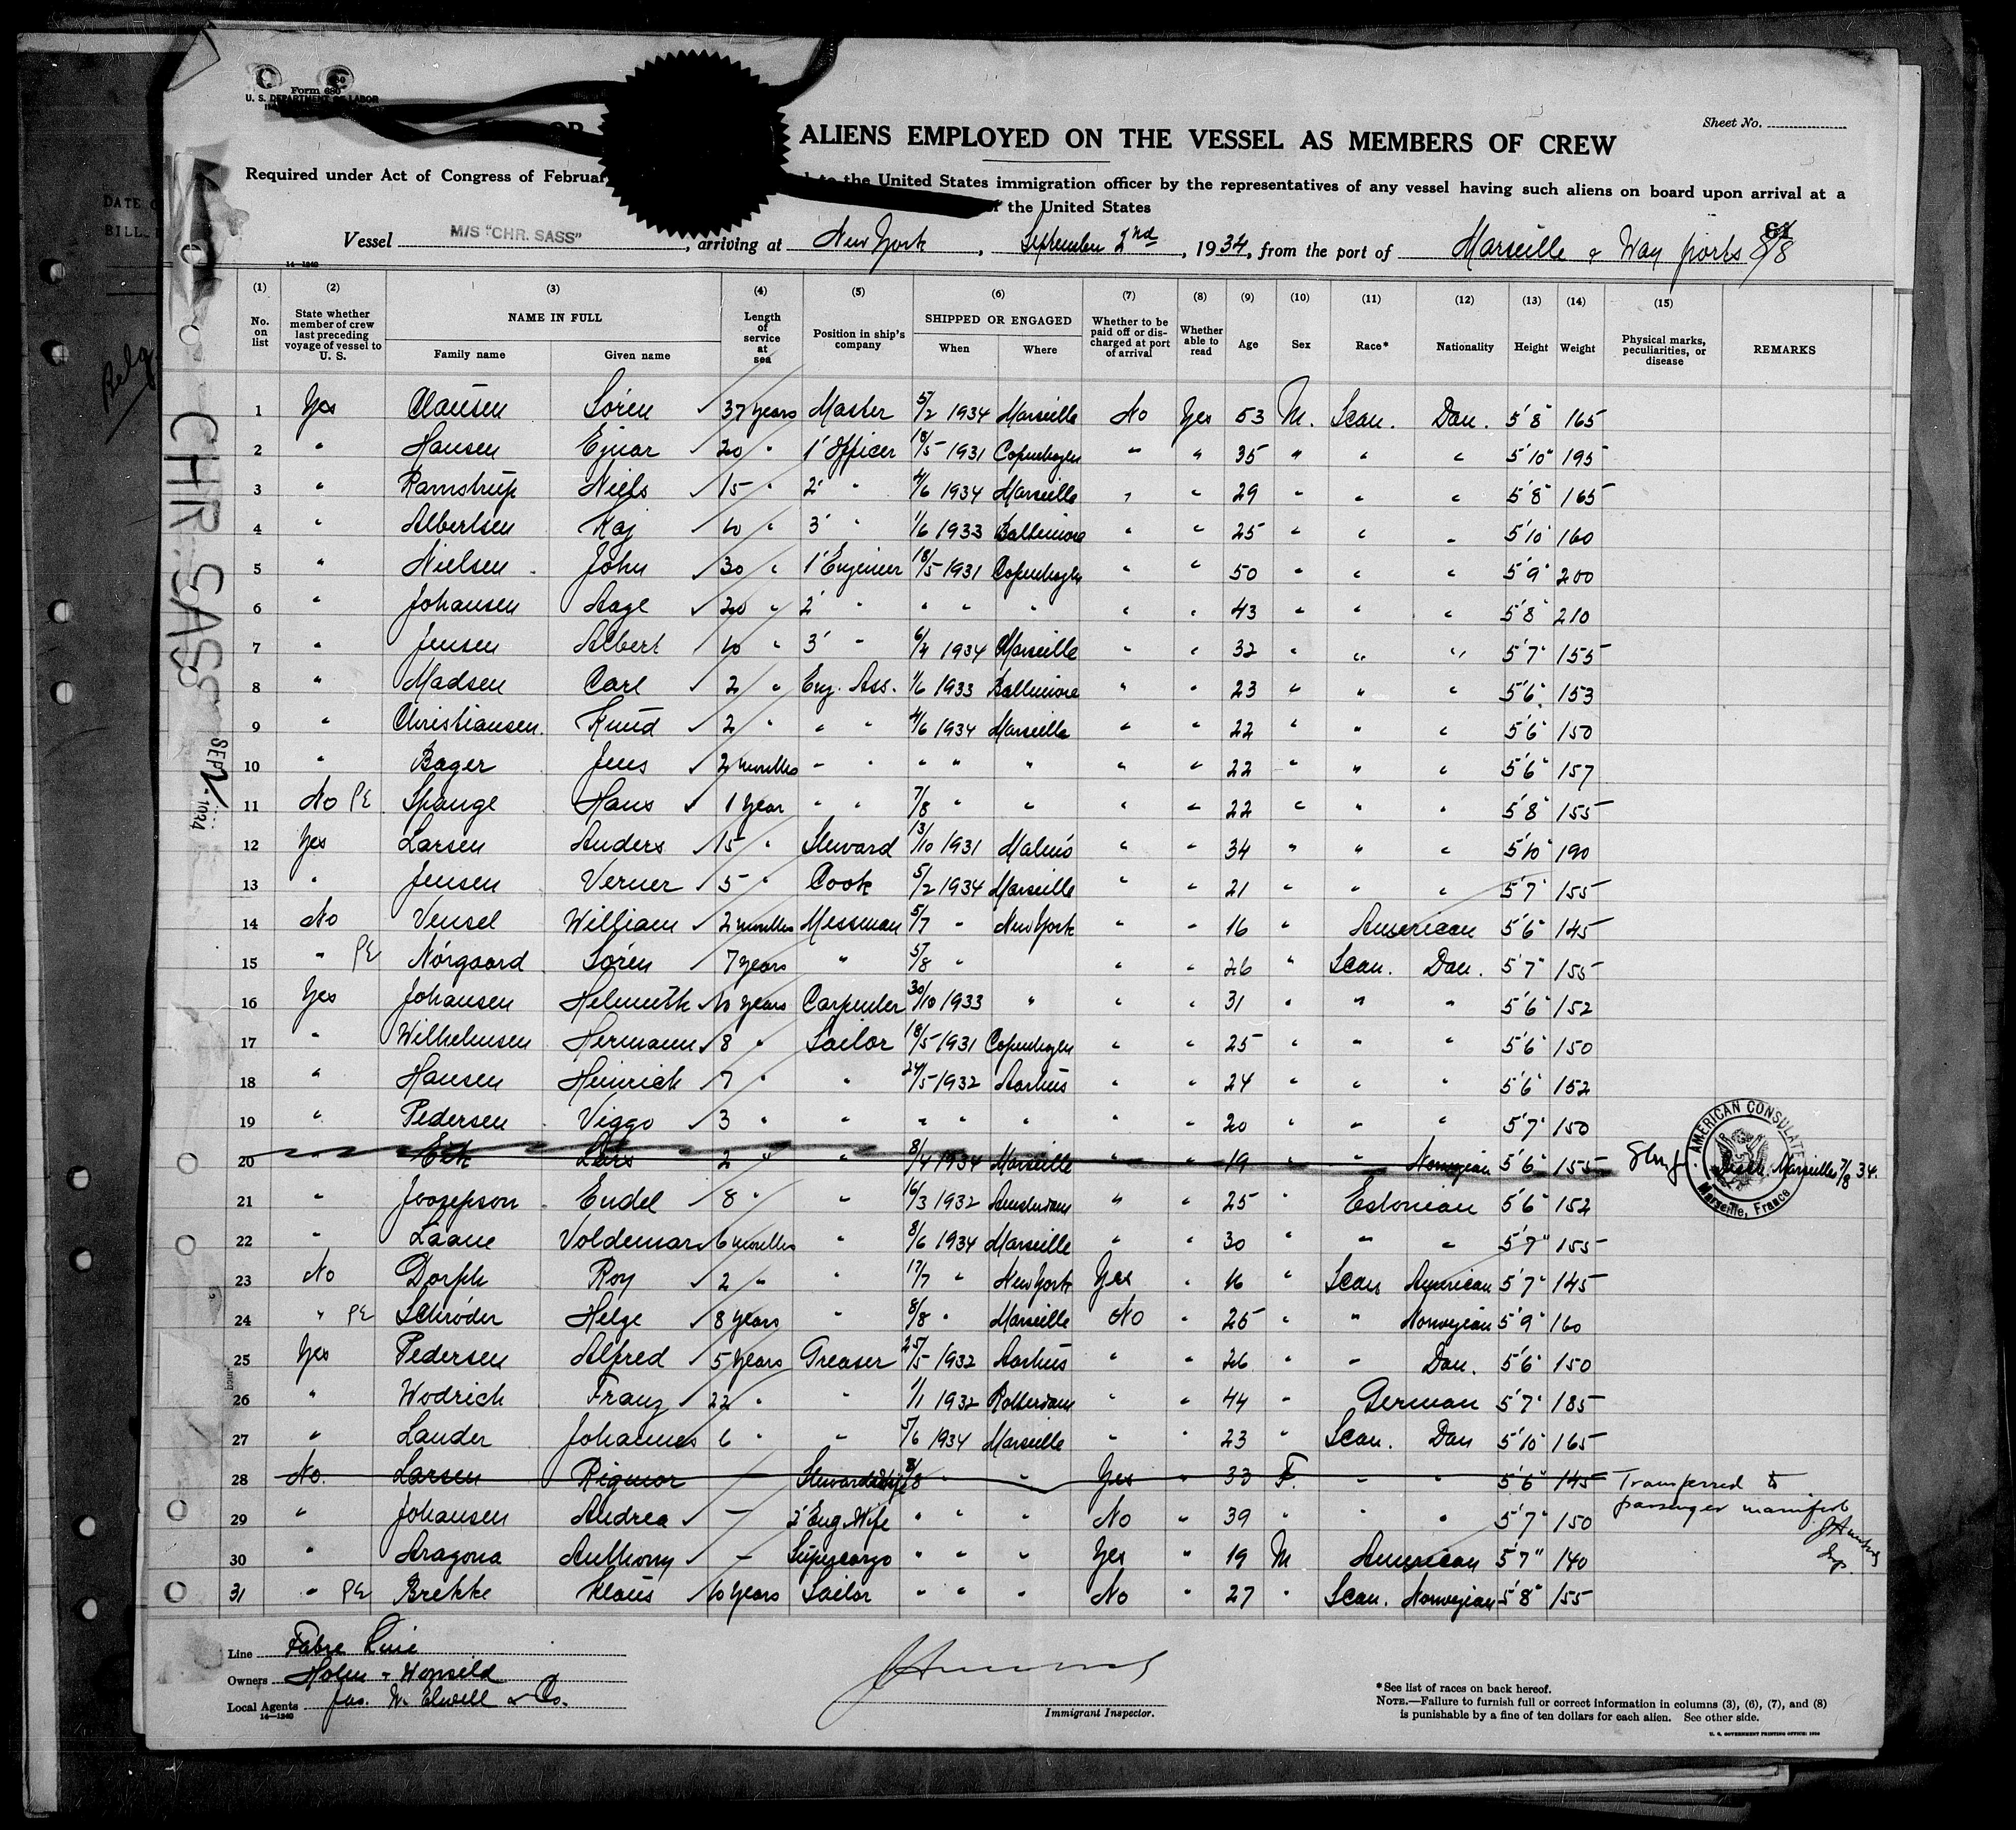 Form 680
U. S. DEPARTMENT OF LABOR
ALIENS EMPLOYED ON THE VESSEL AS MEMBERS OF CREW
Sheet No.
Required under Act of Congress of Februar to the United States immigration officer by the representatives of any vessel having such aliens on board upon arrival at a
of the United States
Vessel M/S "CHR. SASS", arriving at New York, September 2nd, 1934, from the port of Marseille & Way ports 8/8
14-1240
(1) (2) (3) (4) (5) (6) (7) (8) (9) (10) (11) (12) (13) (14) (15)
No. on list State whether member of crew last preceding voyage of vessel to U. S. NAME IN FULL Family name Given name Length of service at sea Position in ship's company SHIPPED OR ENGAGED When Where Whether to be paid off or discharged at port of arrival Whether able to read Age Sex Race* Nationality Height Weight Physical marks, peculiarities, or disease REMARKS
1 Yes Clausen Sören 37 years Master 5/2 1934 Marseille No Yes 53 M. Scan. Dan. 5'8" 165
2 " Hansen Ejnar 20 " 1' Officer 18/5 1931 Copenhagen " " 35 " " " 5'10" 195
3 " Ramstrup Niels 15 " 2' " 4/6 1934 Marseille " " 29 " " " 5'8" 165
4 " Albertsen Kaj 10 " 3' " 1/6 1933 Baltimore " " 25 " " " 5'10" 160
5 " Nielsen John 30 " 1' Engineer 18/5 1931 Copenhagen " " 50 " " " 5'9" 200
6 " Johansen Aage 20 " 2' " " " " " " 43 " " " 5'8" 210
7 " Jensen Albert 10 " 3' " 6/4 1934 Marseille " " 32 " " " 5'7" 155
8 " Madsen Carl 2 " Eng. Ass. 1/6 1933 Baltimore " " 23 " " " 5'6" 153
9 " Christiansen Knud 2 " " " 4/6 1934 Marseille " " 22 " " " 5'6" 150
10 " Bager Jens 2 months " " " " " " " 22 " " " 5'6" 157
11 No PE Spange Hans 1 year " " 7/8 " " " " 22 " " " 5'8" 155
12 Yes Larsen Anders 15 " Steward 13/10 1931 Malmö " " 34 " " " 5'10" 190
13 " Jensen Verner 5 " Cook 5/2 1934 Marseille " " 21 " " " 5'7" 155
14 No Vensel William 2 months Messman 5/7 " New York " " 16 " American 5'6" 145
15 " PE Nörgaard Sören 7 years " 5/8 " " " 26 " Scan. Dan. 5'7" 155
16 Yes Johansen Helmuth 10 years Carpenter 30/10 1933 " " " 31 " " " 5'6" 152
17 " Wilhelmsen Hermann 8 " Sailor 18/5 1931 Copenhagen " " 25 " " " 5'6" 150
18 " Hansen Heinrich 7 " " 24/5 1932 Aarhus " " 24 " " " 5'6" 152
19 " Pedersen Viggo 3 " " " " " " " 20 " " " 5'7" 150
20 " Lars 2 " " 8/4 1934 Marseille " " 19 " " Norwegian 5'6" 155 Marseille 7/8 34.
AMERICAN CONSULATE
Marseille, France
21 " Joosepson Endel 8 " " 16/3 1932 Amsterdam " " 25 " Estonian 5'6" 152
22 " Laane Voldemar 6 months " 8/6 1934 Marseille " " 30 " " " 5'7" 155
23 No Dorph Roy 2 " " 17/7 " New York Yes " 16 " Scan American 5'7" 145
24 " PE Schröder Helge 8 years " 8/8 " Marseille No " 25 " " Norwegian 5'9" 160
25 Yes Pedersen Alfred 5 years Greaser 25/5 1932 Aarhus " " 26 " " Dan. 5'6" 150
26 " Wodrich Franz 22 " " 1/1 1932 Rotterdam " " 44 " German 5'7" 185
27 " Lander Johannes 6 " " 5/6 1934 Marseille " " 23 " Scan. Dan 5'10" 165
28 No. Larsen Rigmor - 8/8 " " Yes " 33 F. " " 5'6" 145 Transferred to
passenger manifest
29 " Johansen Andrea - 2' Eng. Wife " " " No " 39 " " " 5'7" 150
30 " Aragona Anthony - Supercargo " " " Yes " 19 M American 5'7" 140
Insp.
31 " PE Brekke Klaus 10 years Sailor " " " No " 27 " Scan. Norwegian 5'8" 155
Line Fabre Line
Owners Holm & Wonsild
Local Agents Jas. W. Elwell & Co.
14-1240
Immigrant Inspector.
*See list of races on back hereof.
NOTE.—Failure to furnish full or correct information in columns (3), (6), (7), and (8)
is punishable by a fine of ten dollars for each alien. See other side.
U. S. GOVERNMENT PRINTING OFFICE: 1930
CHR SASS
SEP 2 - 1934
DATE
BILL
Belg